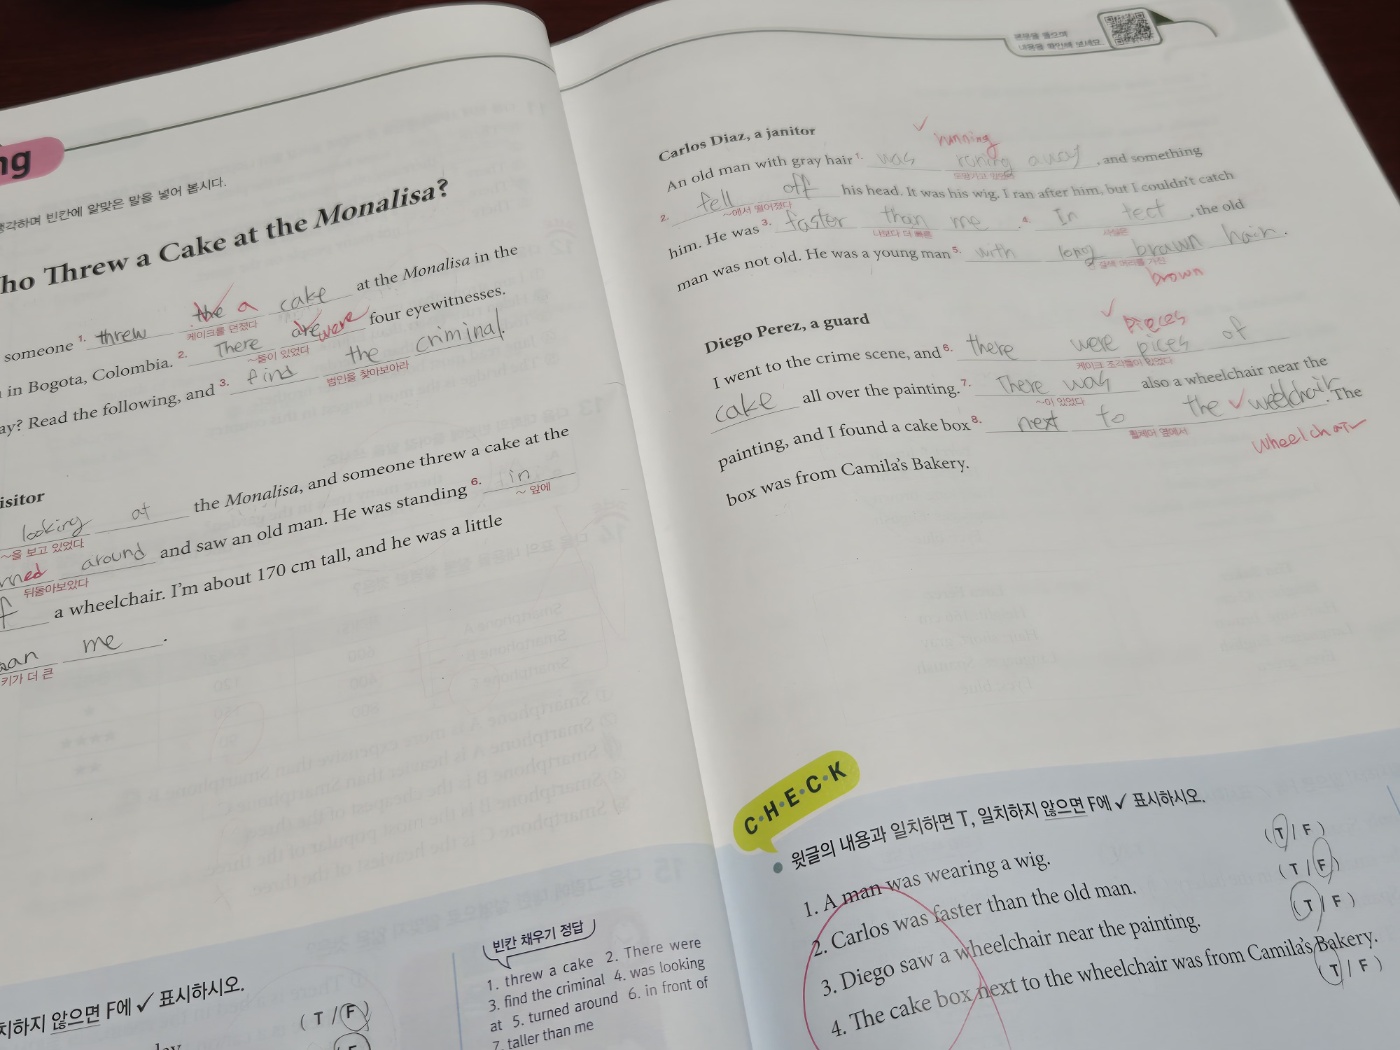 ng
각하며 빈칸에 알맞은 말을 넣어 봅시다.
ho Threw a Cake at the Monalisa?
someone 1. threw the a cake at the Monalisa in the
케이크를 던졌다
in Bogota, Colombia. 2. There are were four eyewitnesses.
~들이 있었다
ay? Read the following, and 3. find the criminal.
범인을 찾아보아라
isitor
looking at the Monalisa, and someone threw a cake at the
~을 보고 있었다
rned around and saw an old man. He was standing 6. in
뒤돌아보았다
~ 앞에
f a wheelchair. I'm about 170 cm tall, and he was a little
an me.
키가 더 큰
치하지 않으면 F에 ✓ 표시하시오.
( T / F )
빈칸 채우기 정답
1. threw a cake 2. There were
3. find the criminal 4. was looking
at 5. turned around 6. in front of
7. taller than me
본문을 들으며
내용을 확인해 보세요.
Carlos Diaz, a janitor
running
An old man with gray hair 1. was runing away, and something
도망가고 있었다
2. fell off his head. It was his wig. I ran after him, but I couldn't catch
~에서 떨어졌다
him. He was 3. faster than me. 4. In fect, the old
나보다 더 빠른
사실은
man was not old. He was a young man 5. with long brown hair.
갈색 머리를 가진
brown
Diego Perez, a guard
pieces
I went to the crime scene, and 6. there were pices of
케이크 조각들이 있었다
cake all over the painting. 7. There was also a wheelchair near the
~이 있었다
painting, and I found a cake box 8. next to the weelchair. The
휠체어 옆에서
wheelchair
box was from Camila's Bakery.
C·H·E·C·K
윗글의 내용과 일치하면 T, 일치하지 않으면 F에 ✓ 표시하시오.
1. A man was wearing a wig. ( T / F )
2. Carlos was faster than the old man. ( T / F )
3. Diego saw a wheelchair near the painting. ( T / F )
4. The cake box next to the wheelchair was from Camila's Bakery. ( T / F )